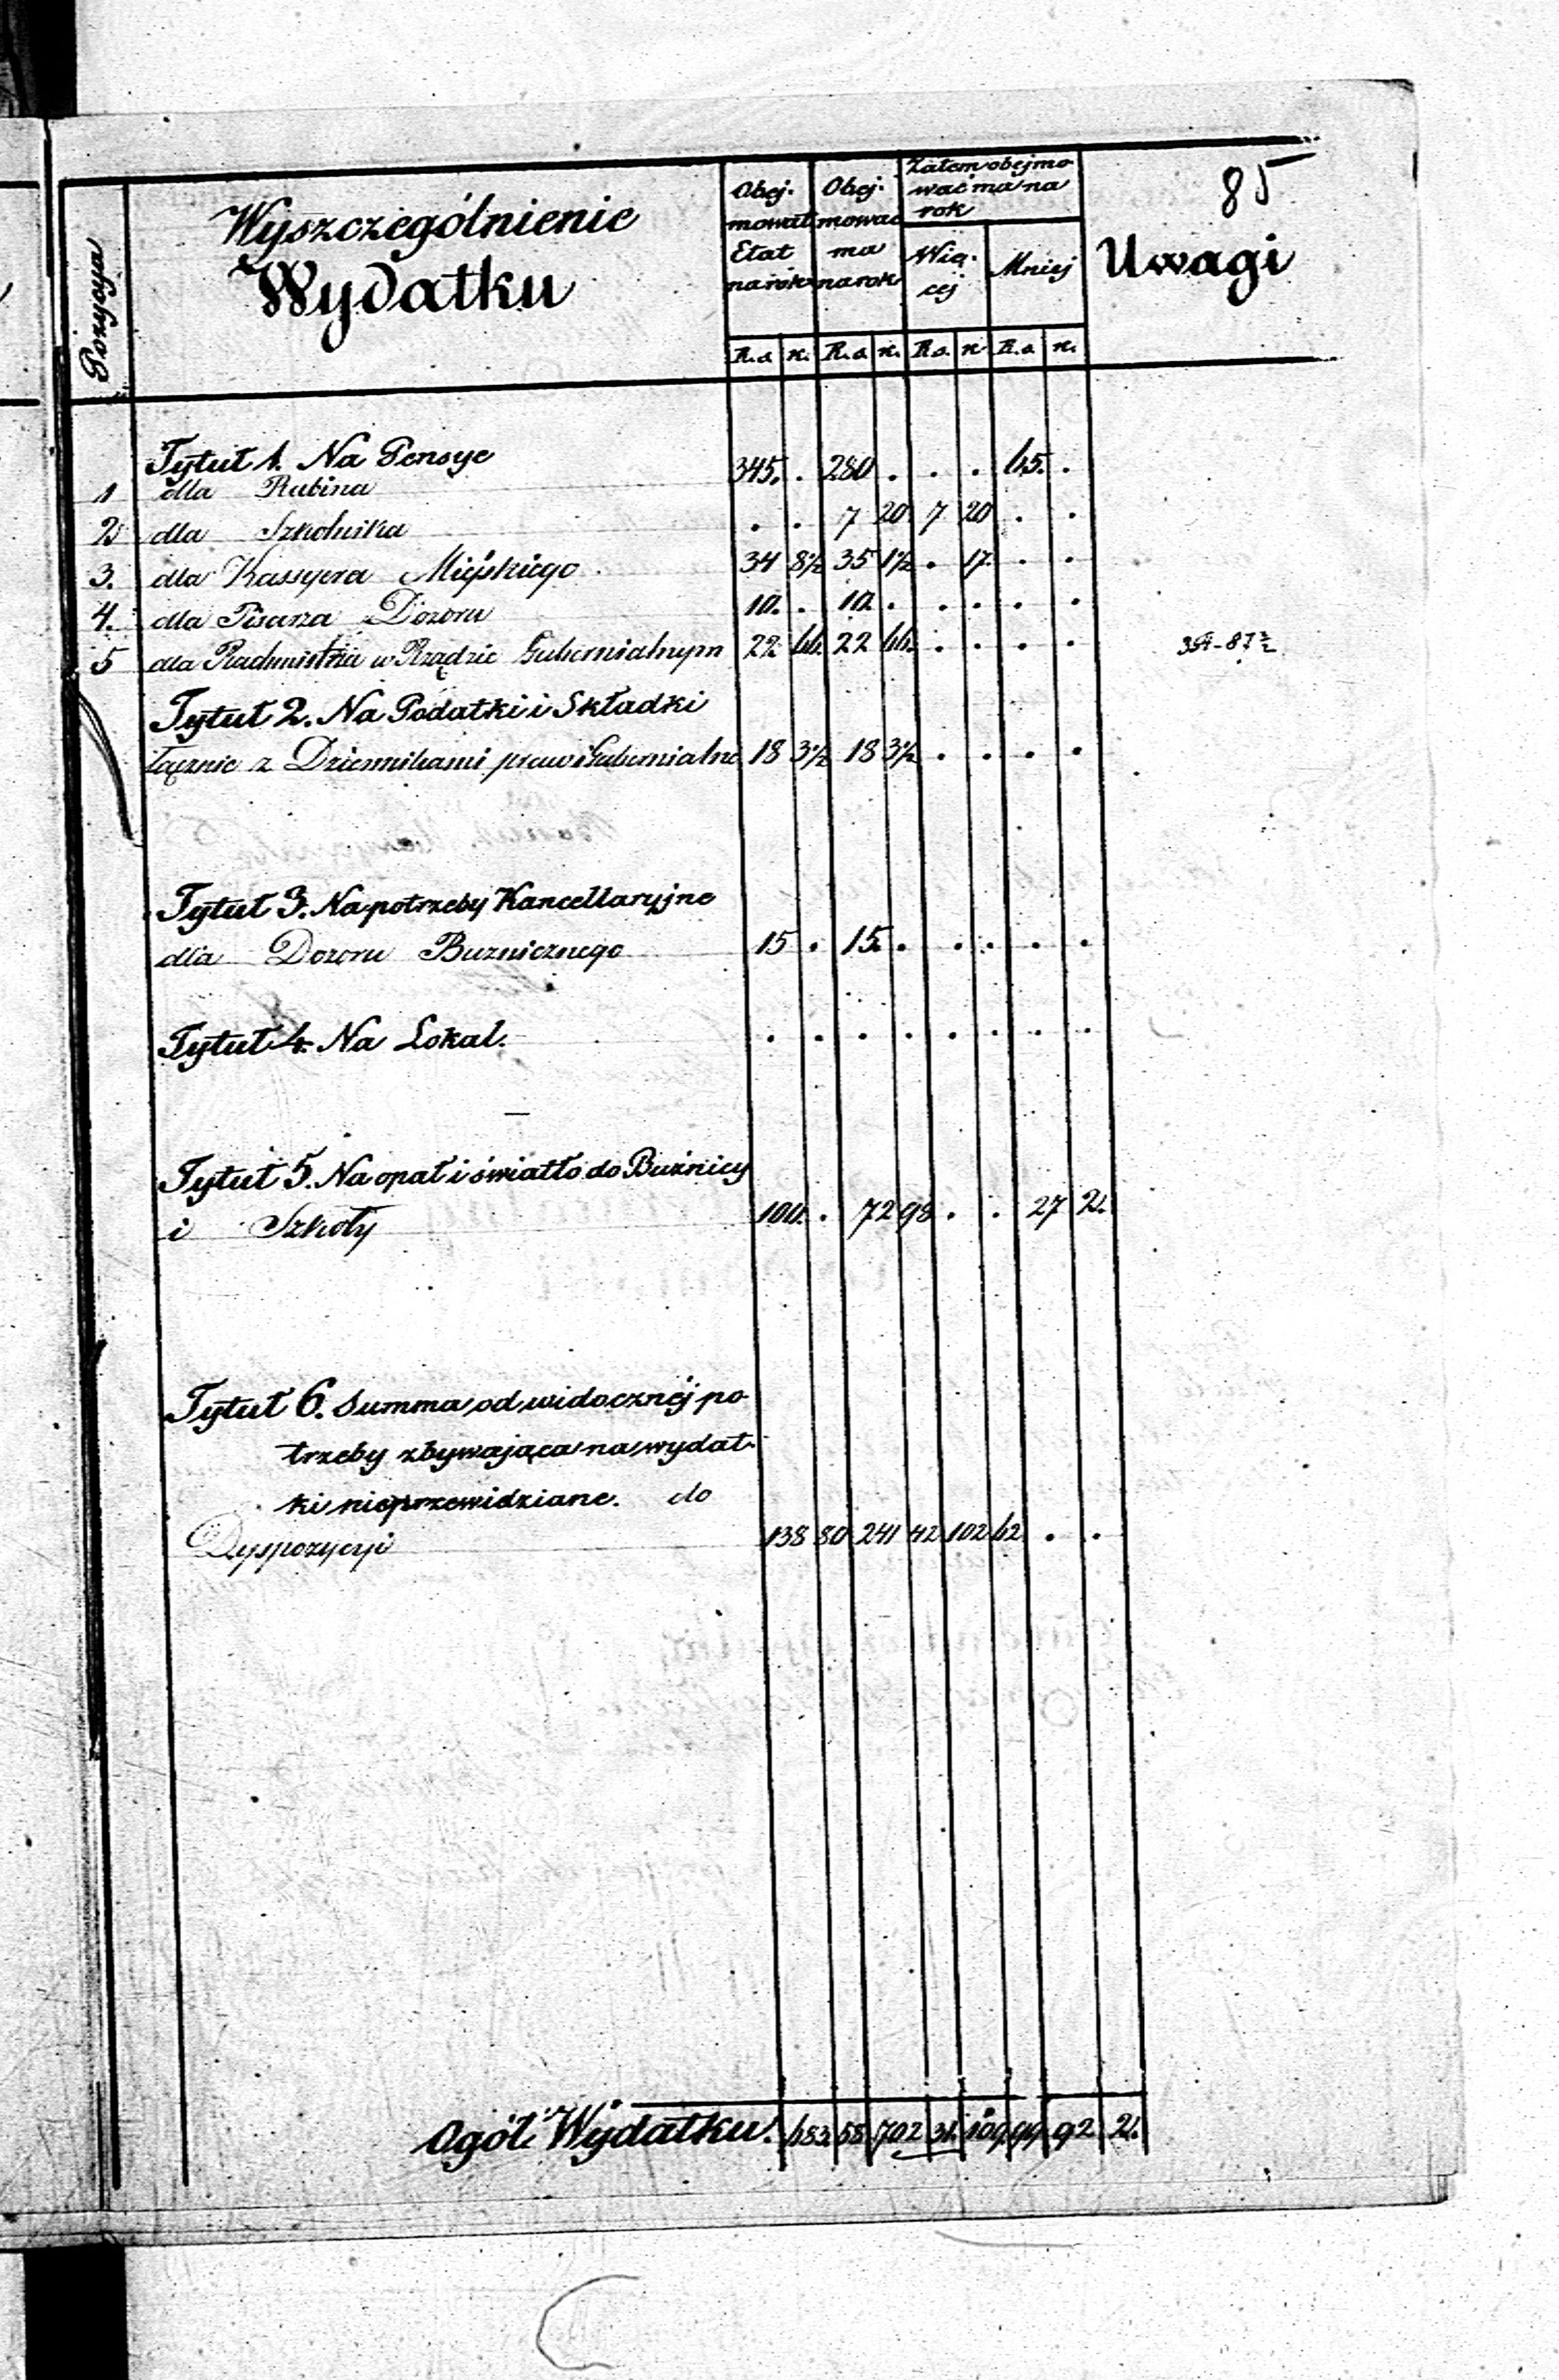 85
Pozycya
Wyszczególnienie
Wydatku
Obej- mował Etat na rok
Obej- mować ma na rok
Zatem obejmo wać ma na rok
Wię- cej
Mniej
Uwagi
R.s. k. R.s. k. R.s. k. R.s. k.
Tytuł 1. Na Pensye
1 dla Rabina 345. . 280 . . . 65. .
2 dla Szkolnika . . 7 20 7 20 . .
3. dla Kassyera Miejskiego 34 8½ 35 1½ . 17. . .
4. dla Pisarza Dozoru 10. . 10. . . . . .
5 dla Rachmistrza w Rządzie Gubernialnym 22 66. 22 66. . . . .
Tytuł 2. Na Podatki i Składki
łącznie z Dziennikami praw i Gubernialne 18 3½ 18 3½ . . . .
Tytuł 3. Na potrzeby Kancellaryjne
dla Dozoru Bużnicznego 15 . 15. . . . . .
Tytuł 4. Na Lokal. . . . . . . . .
Tytuł 5. Na opał i światło do Bużnicy
i Szkoły 100. . 72 98 . . 27 2.
Tytuł 6. Summa od widocznéj po
trzeby zbywająca na wydat-
ki nieprzewidziane. do
Dyspozycyi 138 80 241 42 102 62 . .
Ogół Wydatku. 683 58 702 31. 109 99 92 2.